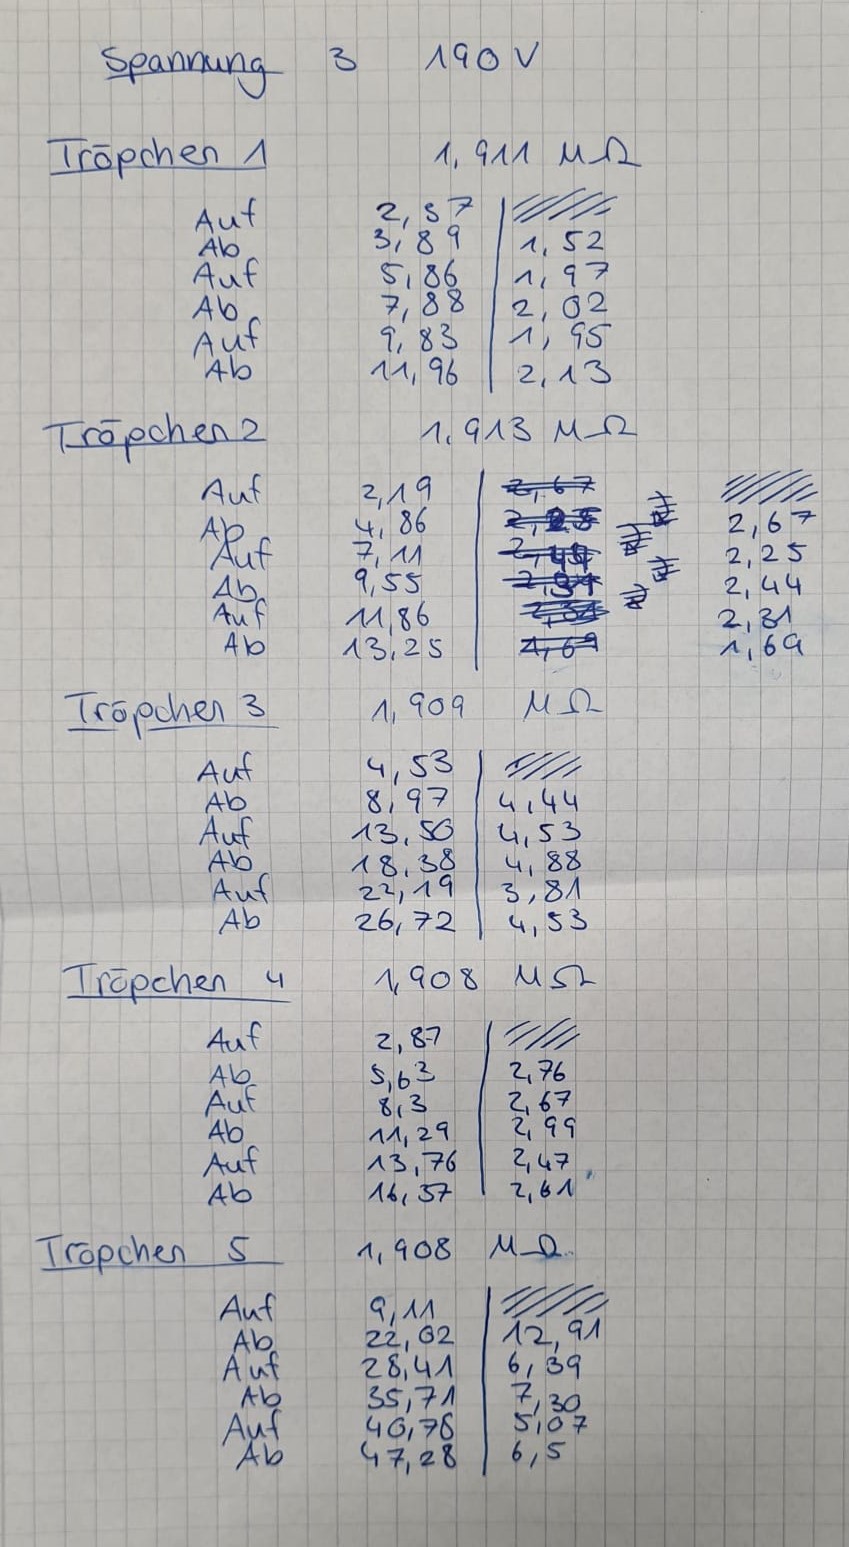 Spannung 3 190 V
Tröpchen 1 1,911 MΩ
Auf 2,37
Ab 3,89 1,52
Auf 5,86 1,97
Ab 7,88 2,02
Auf 9,83 1,95
Ab 11,96 2,13
Tröpchen 2 1,913 MΩ
Auf 2,19 2,67
Ab 4,86 2,67
Auf 7,11 2,25
Ab 9,55 2,44
Auf 11,86 2,31
Ab 13,25 1,69 1,69
Tröpchen 3 1,909 MΩ
Auf 4,53
Ab 8,97 4,44
Auf 13,50 4,53
Ab 18,38 4,88
Auf 22,19 3,81
Ab 26,72 4,53
Tröpchen 4 1,908 MΩ
Auf 2,87
Ab 5,63 2,76
Auf 8,3 2,67
Ab 11,29 2,99
Auf 13,76 2,47
Ab 16,37 2,61
Tröpchen 5 1,908 MΩ
Auf 9,11
Ab 22,02 12,91
Auf 28,41 6,39
Ab 35,71 7,30
Auf 40,78 5,07
Ab 47,28 6,5